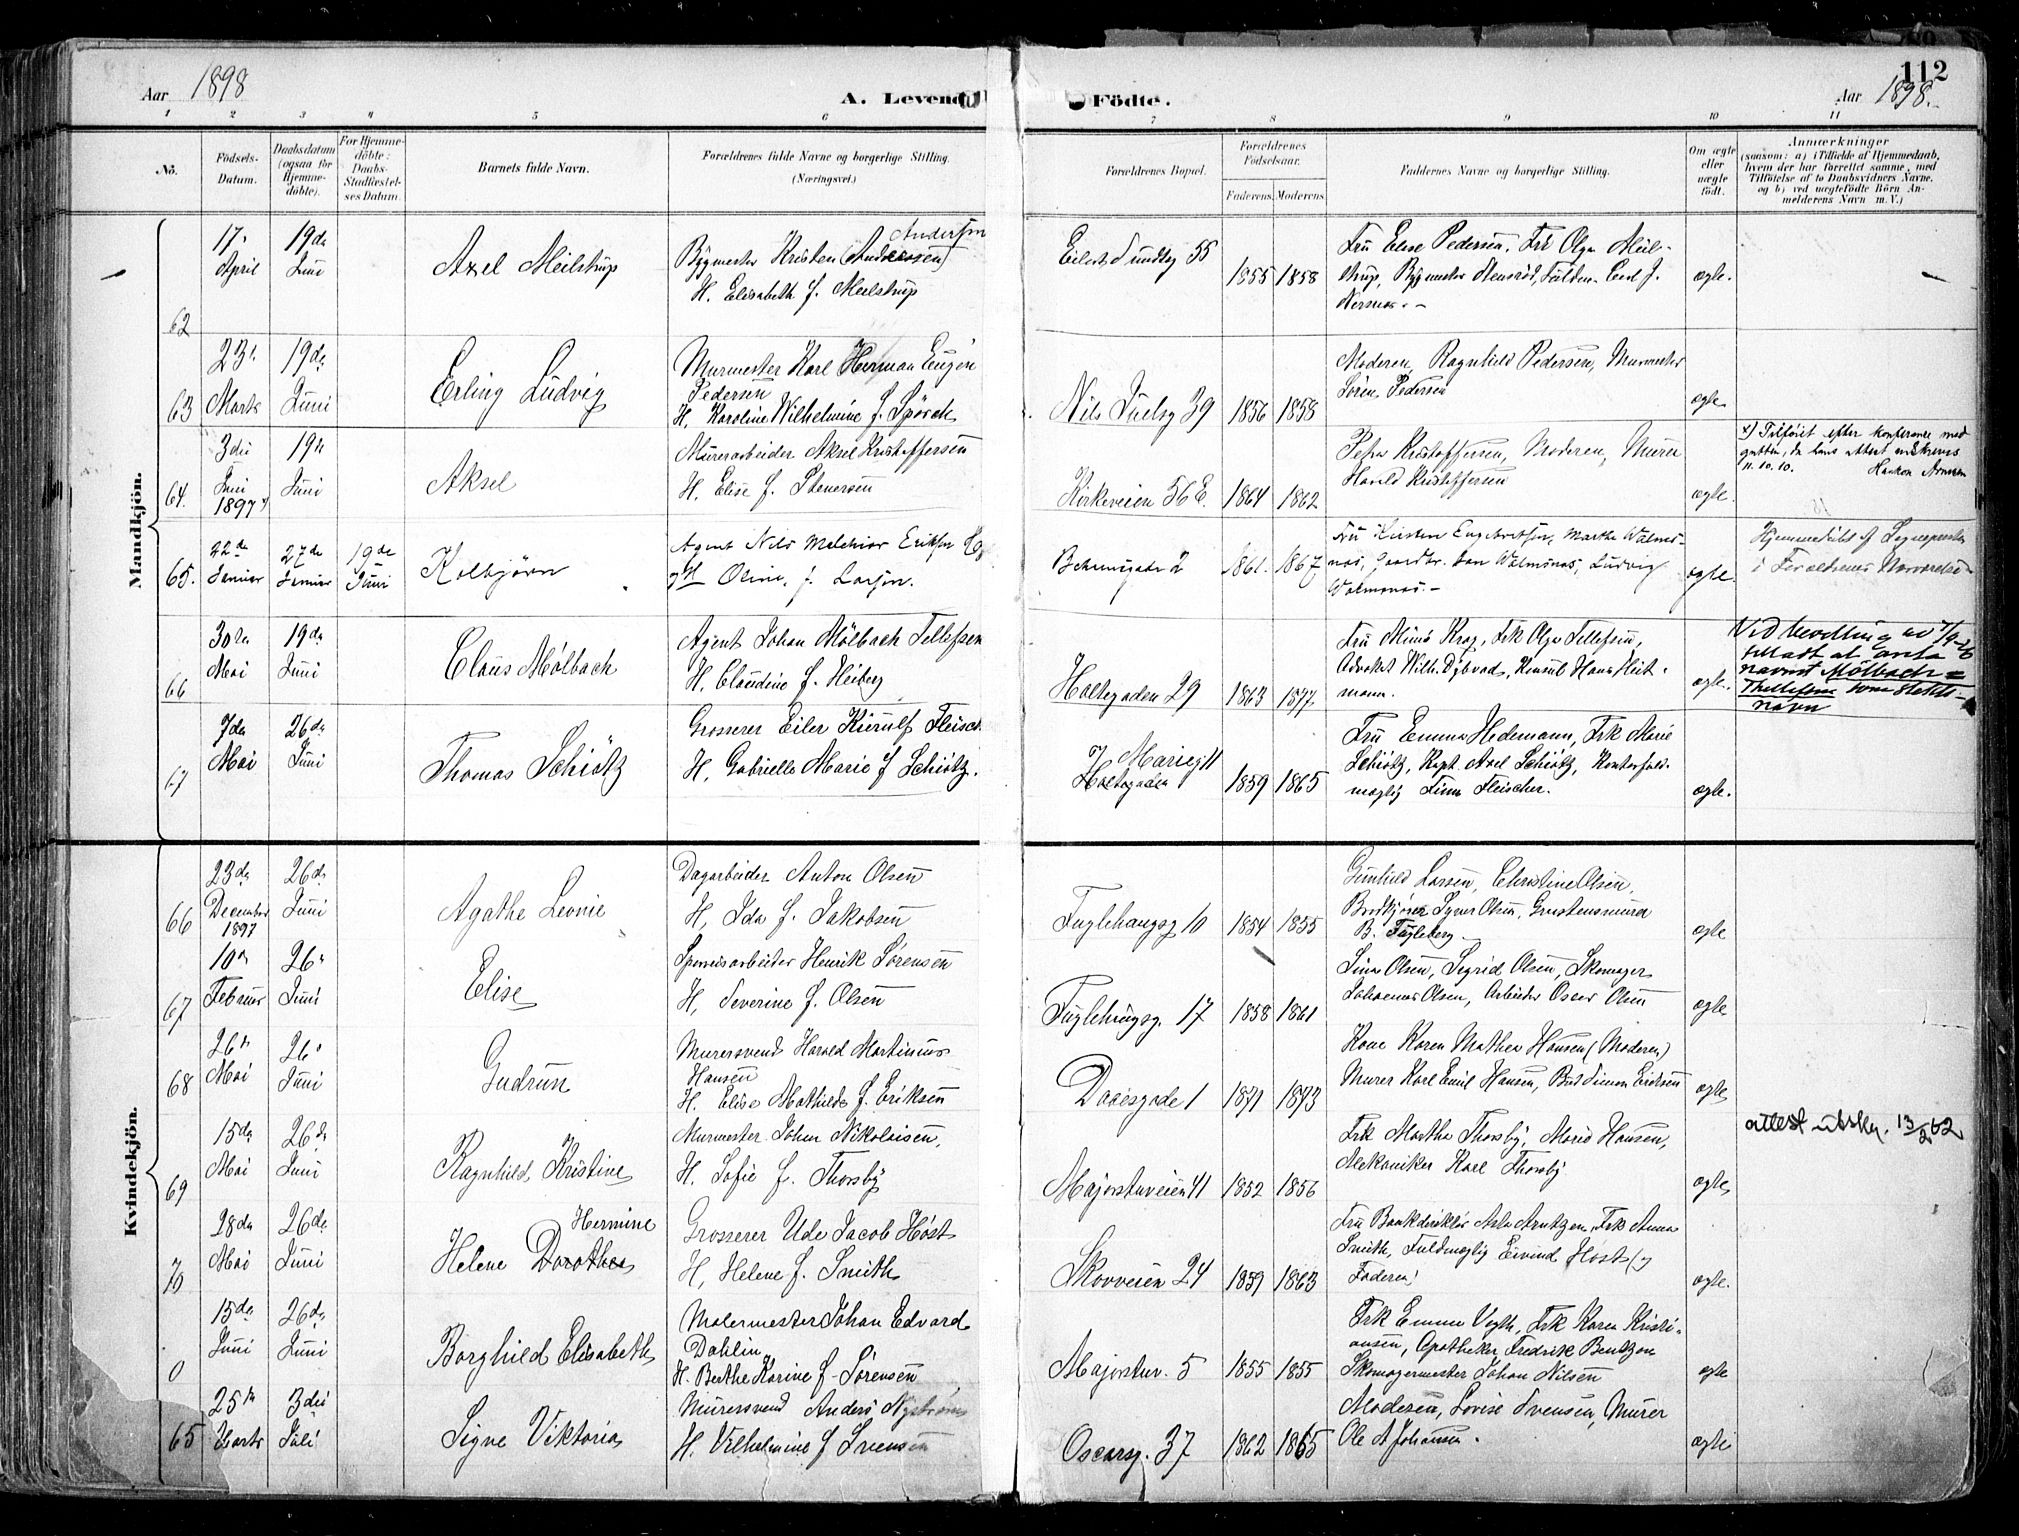 112
Aar 1898
A. Levende Födte.
Aar 1898.
1 2 3 4 5 6 7 8 9 10 11
No.
Födsels-Datum.
Daabsdatum (ogsaa for Hjemmedöbte).
For Hjemmedöbte: Daabs-Stadfæstelses Datum.
Barnets fulde Navn.
Forældrenes fulde Navne og borgerlige Stilling. (Næringsvei.)
Forældrenes Bopæl.
Forældrenes Födselsaar.
Faderens Moderens
Faddernes Navne og borgerlige Stilling.
Om ægte eller uægte födt.
Anmærkninger
(saasom: a) i Tilfælde af Hjemmedaab, hvem der har forrettet samme, med Tilföielse af to Daabsvidners Navne, og b) ved uægtefödte Börn Anmelderens Navn m. V.)
Mandkjön.
62 17. April 19de Juni Axel Meilstrup
Bygmester Kristen (Andreassen) Andersen
H. Elisabeth f. Meilstrup
Eilert Sundtsg 55 1855 1858
Fru Elise Pedersen, Frk Olga Meilstrup, Bygmester
ægte.
63 23. Marts 19de Juni Erling Ludvig
Murmester Karl Herman Eugen
Pedersen
H. Karoline Wilhelmine f. Spörck
Nils Juelsg 39 1856 1858
Moderen, Ragnhild Pedersen, Murmester
Sören Pedersen
ægte
64. 3die Juni 1897 x) 19de Juni Aksel
Murerarbeider Aksel Kristoffersen
H. Elise f. Stenersen
Kirkeveien 56 E. 1864 1862
Petra Kristoffersen, Moderen, Murer
Harald Kristoffersen
ægte.
x) Tilföiet efter konferance med
11.10.10.
65. 22de Januar 27de Januar 19de Juni Kolbjørn
Agent Nils Melchior Eriksen
H Oline f. Larsen.
2 1861. 1867
Fru Kirsten Engebretsen, Martha
Ludvig
ægte.
Hjemmedöbt af Sognepresten
i Forældrenes Nærværelse
66 30te Mai 19de Juni Claus Mölbach
Agent Johan Mölbach Tellefsen
H. Claudine f. Heiberg
Holtegaden 29 1863 1877
Fru Mimi Krag, Frk Olga Tellefsen,
Advokat Wilh. Dybwad, Konsul Hans Heitmann.
ægte.
Ved bevilling av 7/9-26
tillatt at anta
navnet Mölbach=
Thellefsen som slekts-
navn
67 7de Mai 26de Juni Thomas Schiötz
Grosserer Eiler Kierulf Fleisch
H. Gabrielle Marie f Schiötz.
J Mariegt
Holtegaden 1859 1865
Fru Emma Hedemann, Frk Marie
Schiötz, Kapt. Axel Schiötz, Kontorfuldmægtig Finn Fleischer.
ægte.
Kvindekjön.
66 23de December 1897 26de Juni Agathe Leonie
Dagarbeider Anton Olsen
H, Ida f. Jakobsen
Fuglehaugsg 10 1854 1855
Gunhild Larsen, Christine Olsen,
B. Fugleberg
ægte
67 10de Februar 26. Juni Elise
Sporveisarbeider Henrik Sörensen
H, Severine f. Olsen
Fuglehaugsg. 17 1858 1861
Lina Olsen, Sigrid Olsen, Skomager
Johannes Olsen, Arbeider Oscar Olsen
ægte
68 26de Mai 26. Juni Gudrun
Murersvend Harald Martinius
Hansen
H. Elise Mathilde f. Eriksen
Daaesgade 1 1871 1873
Kone Karen Mathea Hansen (Moderen)
Murer Karl Emil Hansen, Simon Eriksen
ægte
69 15de Mai 26de Juni Ragnhild Kristine
Murmester Johan Nikolaisen,
H. Sofie f. Thorsby
Majorstuveien 41 1852 1856
Frk Martha Thorsby, Marie Hansen,
Mekaniker Karl Thorsby
ægte
attest utskr. 13/2 62
70 28de Mai 26de Juni Helene Dorothea Hermine
Grosserer Ude Jacob Höst
H, Helene f. Smith
Skovveien 24 1859 1863
Fru Bankdirektör Arntzen, Frk Anna
Smith, Fuldmægtig Eivind Höst (
Faderen)
ægte.
0 15de Juni 26de Juni Borghild Elisabeth
Malermester Johan Edvard
Dahlin
H. Berthe Karine f. Sörensen
Majorstuv. 5 1855 1855
Frk Emma Vogth, Frk Karen Kristiansen, Apotheker Fredrik Bentzen
Skomagermester Johan Nilsen
ægte
65 25de Marts 3die Juli Signe Viktoria
Murersvend Anders Nyström
H. Vilhelmine f Svensen
Oscarsg. 37 1862 1865
Moderen, Lovise Svensen, Murer
Ole A Johansen.
ægte